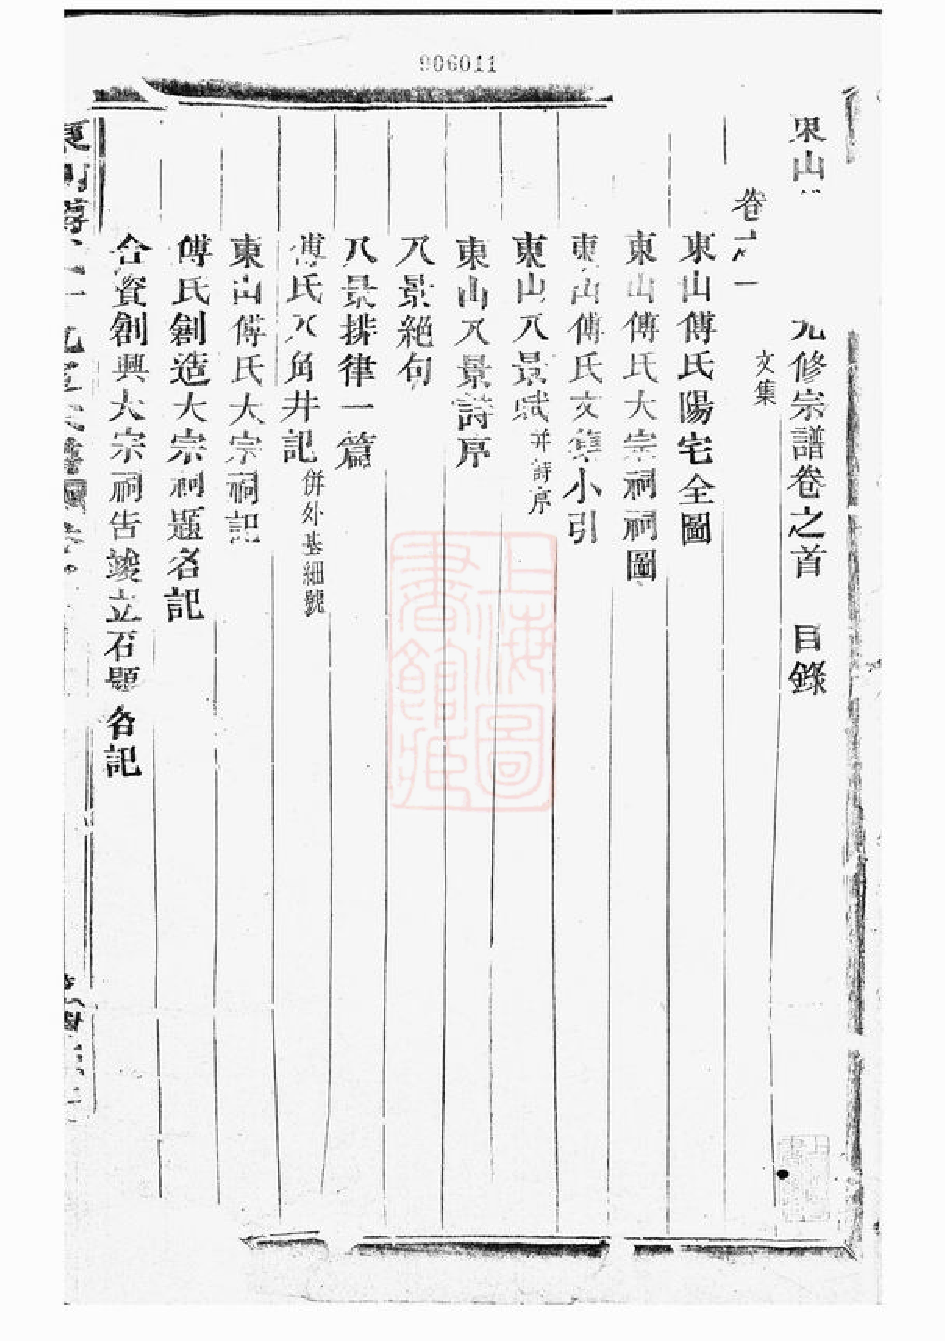 906011
東山 九修宗譜卷之首 目錄
卷之一
文集
東山傅氏陽宅全圖
東山傅氏大宗祠祠圖
東山傅氏文集小引
東山八景賦 并詩序
東山八景詩序
八景絕句
八景排律一篇
傅氏八角井記 併外基細號
東山傅氏大宗祠記
傅氏創造大宗祠題名記
合資創興大宗祠告竣立石題名記
上海圖書館藏